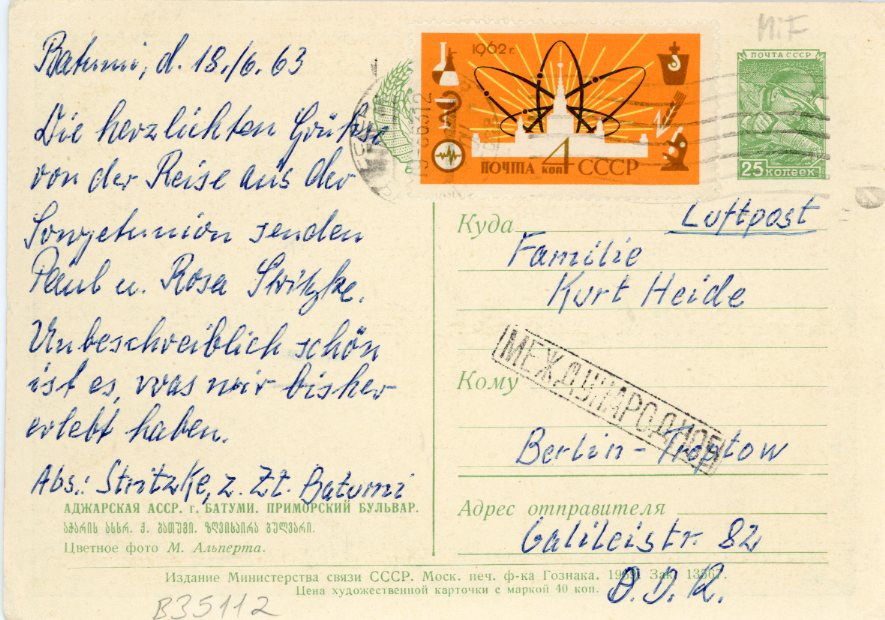 Batumi, d. 18./6. 63
Die herzlichten Grüße
von der Reise aus der
Sowjetunion senden
Paul u. Rosa Stritzke.
Unbeschreiblich schön
ist es, was wir bisher
erlebt haben.
Abs.: Stritzke, z. Zt. Batumi
АДЖАРСКАЯ АССР. г. БАТУМИ. ПРИМОРСКИЙ БУЛЬВАР.
აჭარის ასსრ. ქ. ბათუმი. ზღვისპირა ბულვარი.
Цветное фото М. Альперта.
M.i.F
1962 г.
ПОЧТА 4 коп СССР
ПОЧТА СССР
25 копеек
Luftpost
Куда
Familie
Kurt Heide
МЕЖДУНАРОДНОЕ
Кому
Berlin-Treptow
Адрес отправителя
Galileistr. 82
D.D.R.
Издание Министерства связи СССР. Моск. печ. ф-ка Гознака. Зак. 13367.
Цена художественной карточки с маркой 40 коп.
B35112